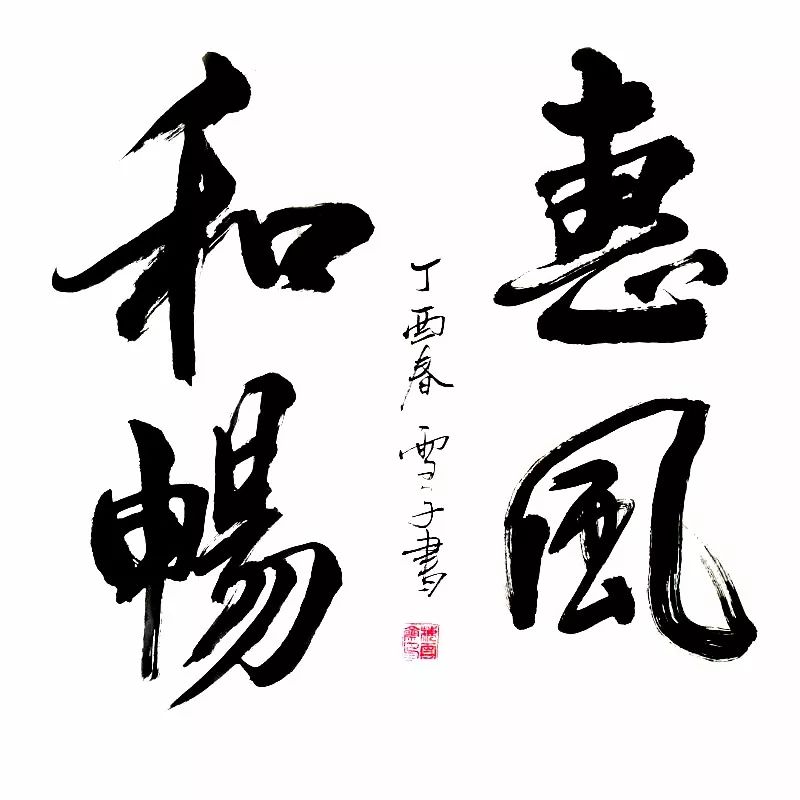 惠風
和暢
丁酉春 雪子書